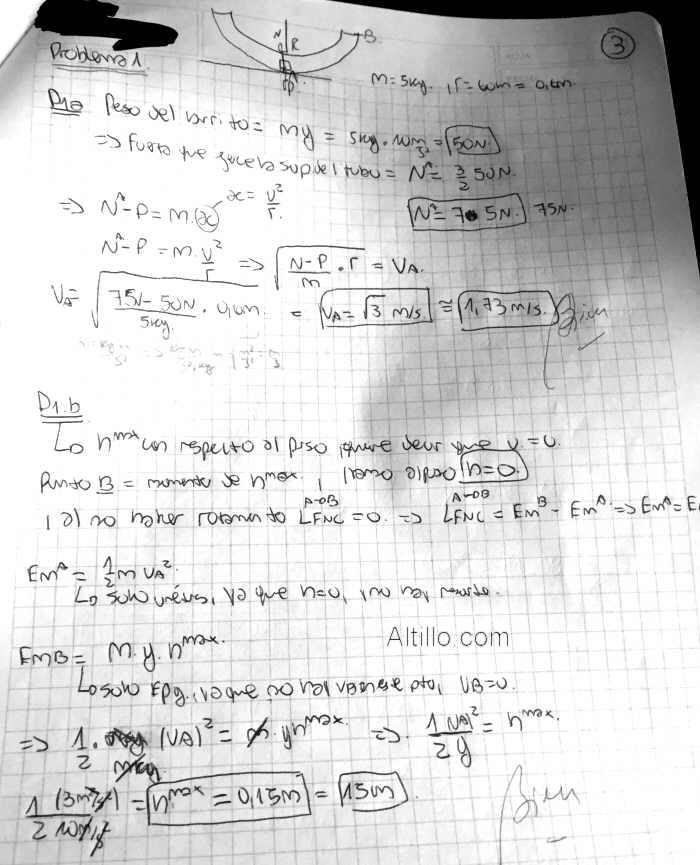 3
N R B
Problema 1.
m=5kg. , r=60cm = 0,6m.
P
D1a Peso del carrito = mg = 5kg. 10m/s² = 50N.
=> Fuerza que ejerce la sup del tubo = Nᴬ = 3/2 50N.
=> Nᴬ-P = m.(ac) ac = v²/r. Nᴬ= 75N. 75N.
Nᴬ-P = m.v²/r => √(N-P/m . r) = VA.
VA= √(75N-50N/5kg. 0,6m) = VA = √3 m/s ≅ 1,73 m/s. Bien
D1.b
hmax con respecto al piso, quiere decir que v=0.
Punto B = momento de hmax. , tomo al piso h=0.
, al no haber rozamiento LFNC A→B =0. => LFNC A→B = EmB - EmA. => EmA = E
EmA = 1/2 m VA².
Solo cinética, ya que h=0, no hay resorte.
EMB = m.g.hmax.
Solo EPg, ya que no hay en ese pto, VB=0.
Altillo.com
=> 1/2 . (VA)² = m. g hmax. => 1/2 (VA)²/g = hmax.
1/2 (3m²/s²)/10m/s² = hmax = 0,15m = 15m.
Bien